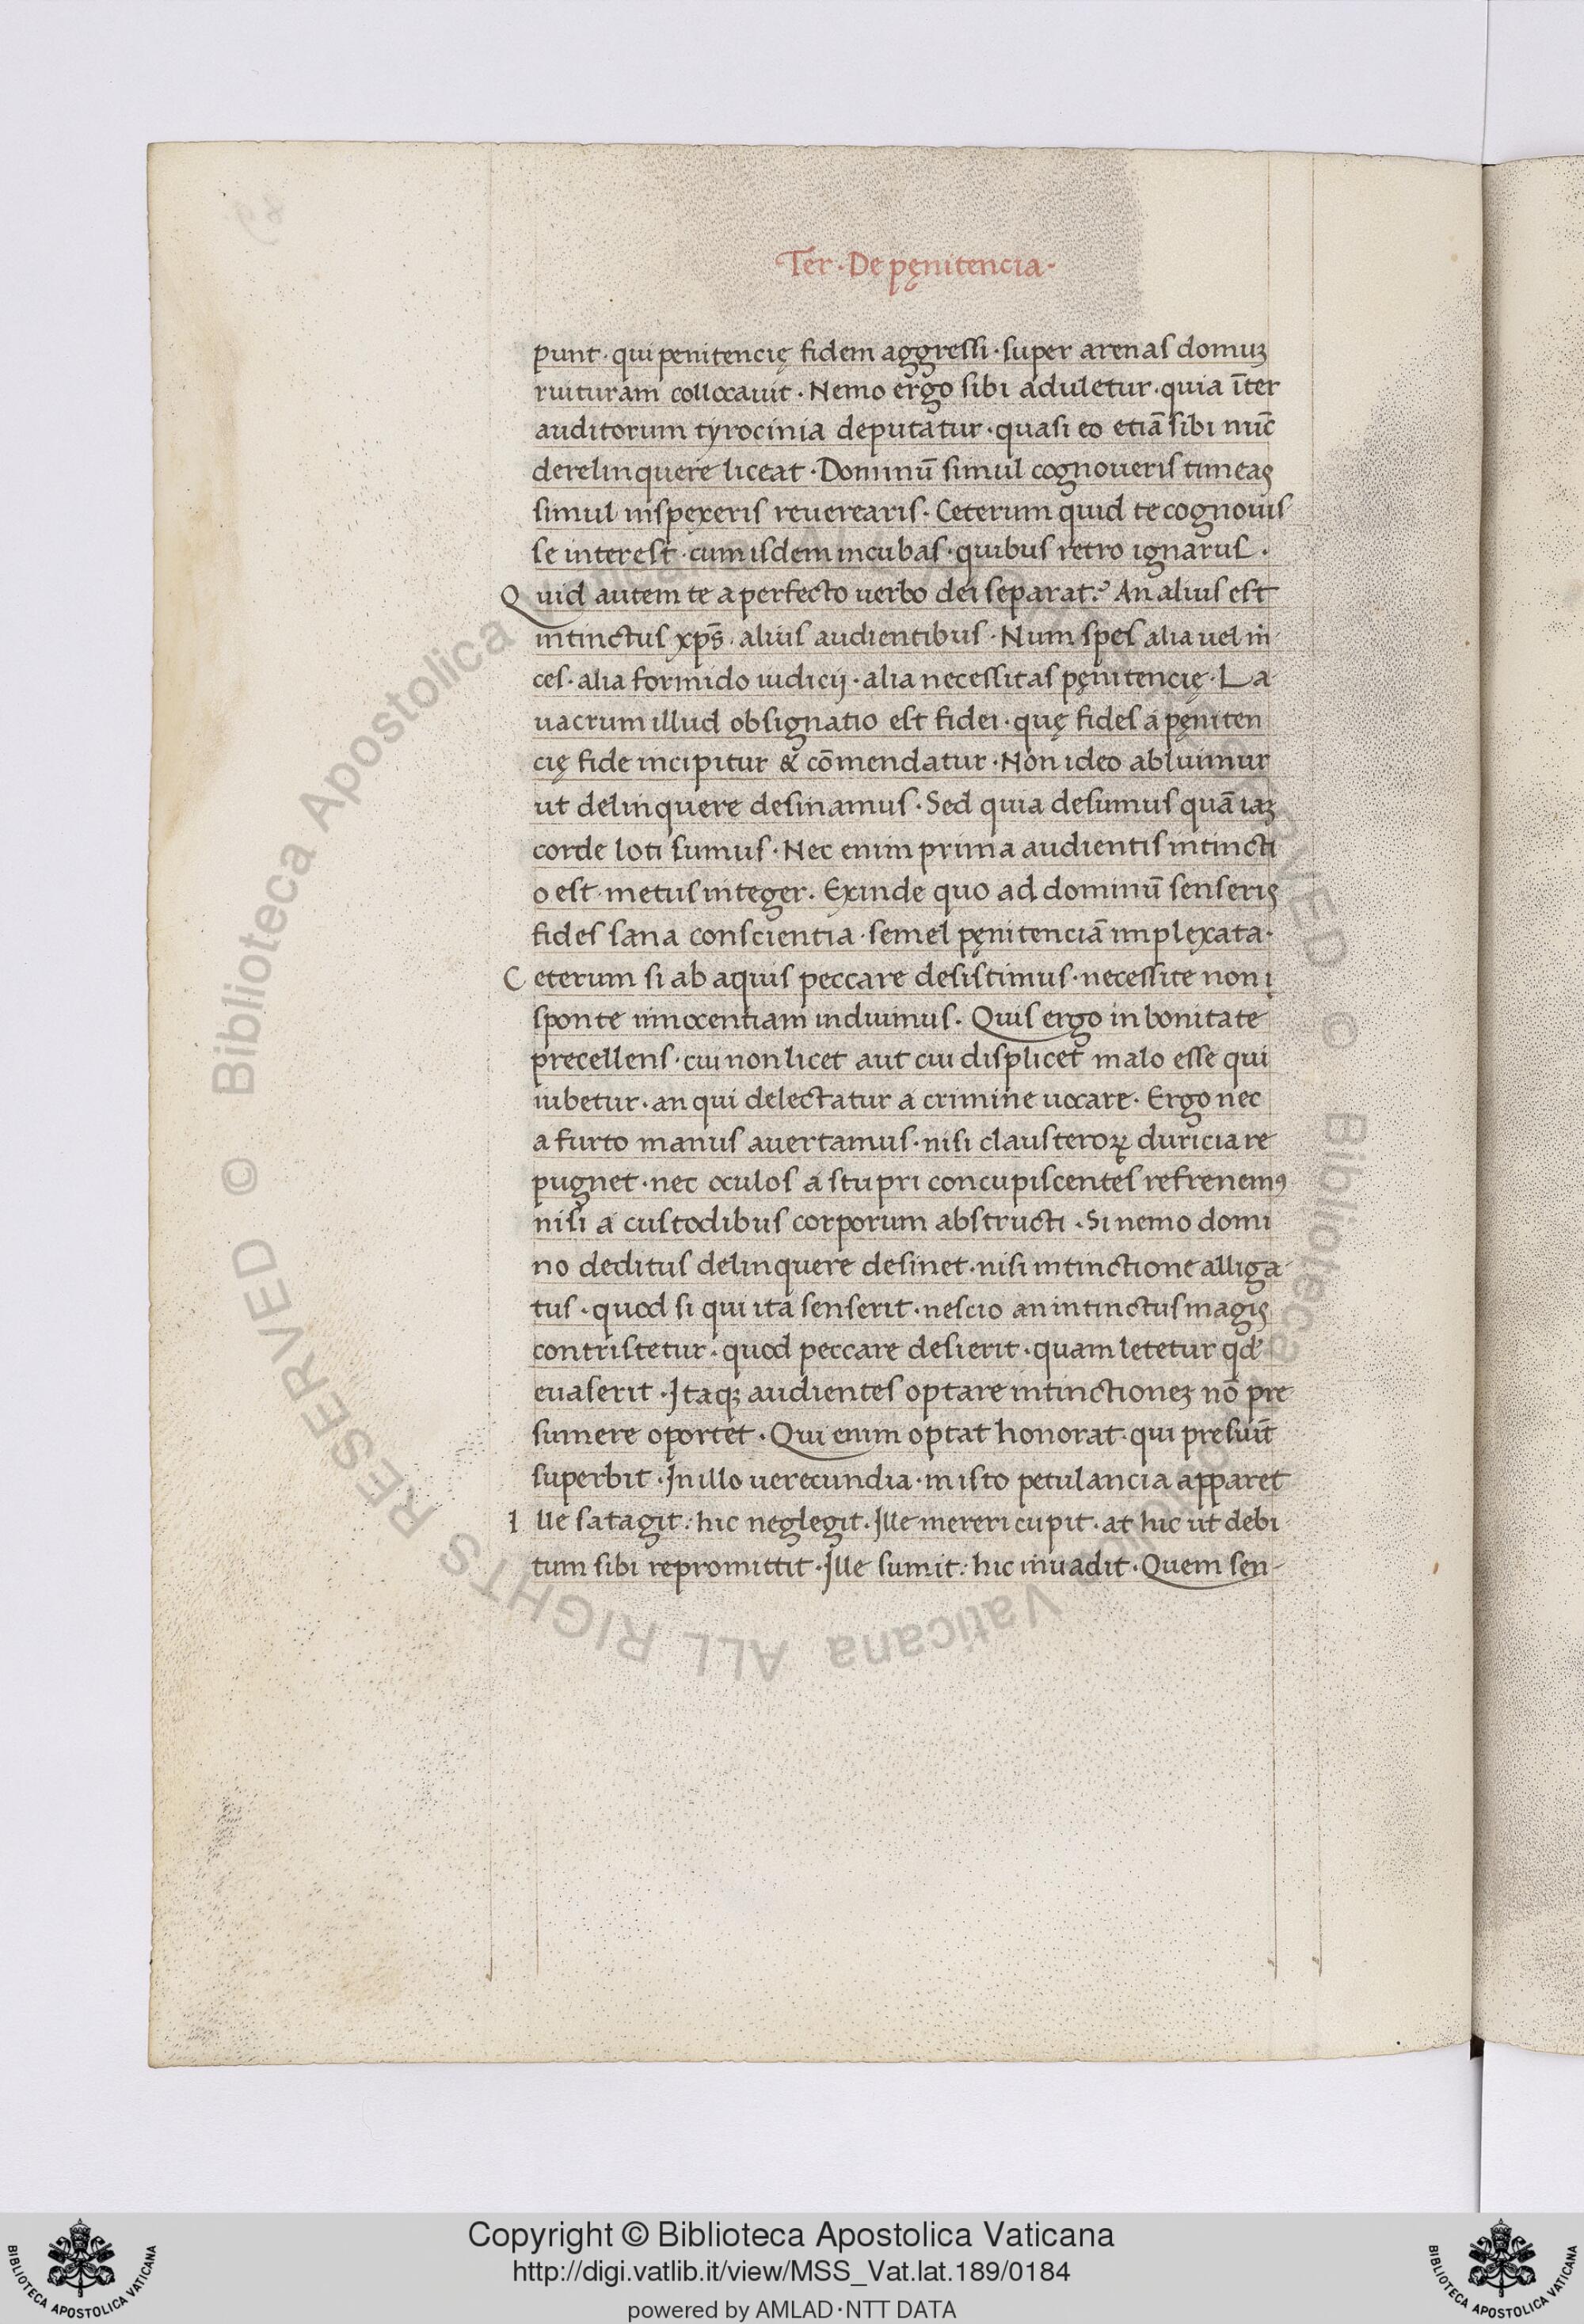 Ter · De pęnitencia ·
punt · qui penitencię fidem aggressi · super arenas domuʒ
ruituram collocavit · Nemo ergo sibi aduletur · quia īter
auditorum tyrocinia deputatur · quasi eo etiā sibi nūc
derelinquere liceat · Dominū simul cognoveris timeas
simul inspexeris reverearis · Ceterum quid te cognovis
se interest · cum isdem incubas · quibus retro ignarus ·
Quid autem te a perfecto verbo dei separat? An alius est
intinctus xp̄s · alius audientibus · Num spes alia vel m̄
ces · alia formido iudicij · alia necessitas pęnitencię · La
vacrum illud obsignatio est fidei · quę fides a pęniten
cię fide incipitur & cōmendatur · Non ideo abluimur
ut delinquere desinamus · Sed quia desumus quā iaʒ
corde loti sumus · Nec enim prima audientis intincti
o est metus integer · Exinde quo ad dominū senseris
fides sana conscientia · semel pęnitenciā implexata ·
Ceterum si ab aquis peccare desistimus · necessite non
sponte innocentiam induimus · Quis ergo in bonitate
precellens · cui non licet aut cui displicet malo esse qui
iubetur · an qui delectatur a crimine vocare · Ergo nec
a furto manus avertamus · nisi clausteroꝝ duricia re
pugnet · nec oculos a stupri concupiscentes refrenemꝰ
nisi a custodibus corporum abstructi · Si nemo domi
no deditus delinquere desinet · nisi intinctione alliga
tus · quod si qui ita senserit · nescio an intinctus magis
contristetur · quod peccare desierit · quam letetur qđ
evaserit · Itaqʒ audientes optare intinctioneʒ nō pre
sumere oportet · Qui enim optat honorat · qui presuit̄
superbit · In illo verecundia · in isto petulancia apparet
Ille satagit : hic neglegit · Ille mereri cupit · at hic ut debi
tum sibi repromittit · Ille sumit : hic invadit · Quem sen-
© Biblioteca Apostolica Vaticana ALL RIGHTS RESERVED © Biblioteca Apostolica Vaticana ALL RIGHTS RESERVED
Copyright © Biblioteca Apostolica Vaticana
http://digi.vatlib.it/view/MSS_Vat.lat.189/0184
powered by AMLAD·NTT DATA
BIBLIOTECA APOSTOLICA VATICANA
BIBLIOTECA APOSTOLICA VATICANA